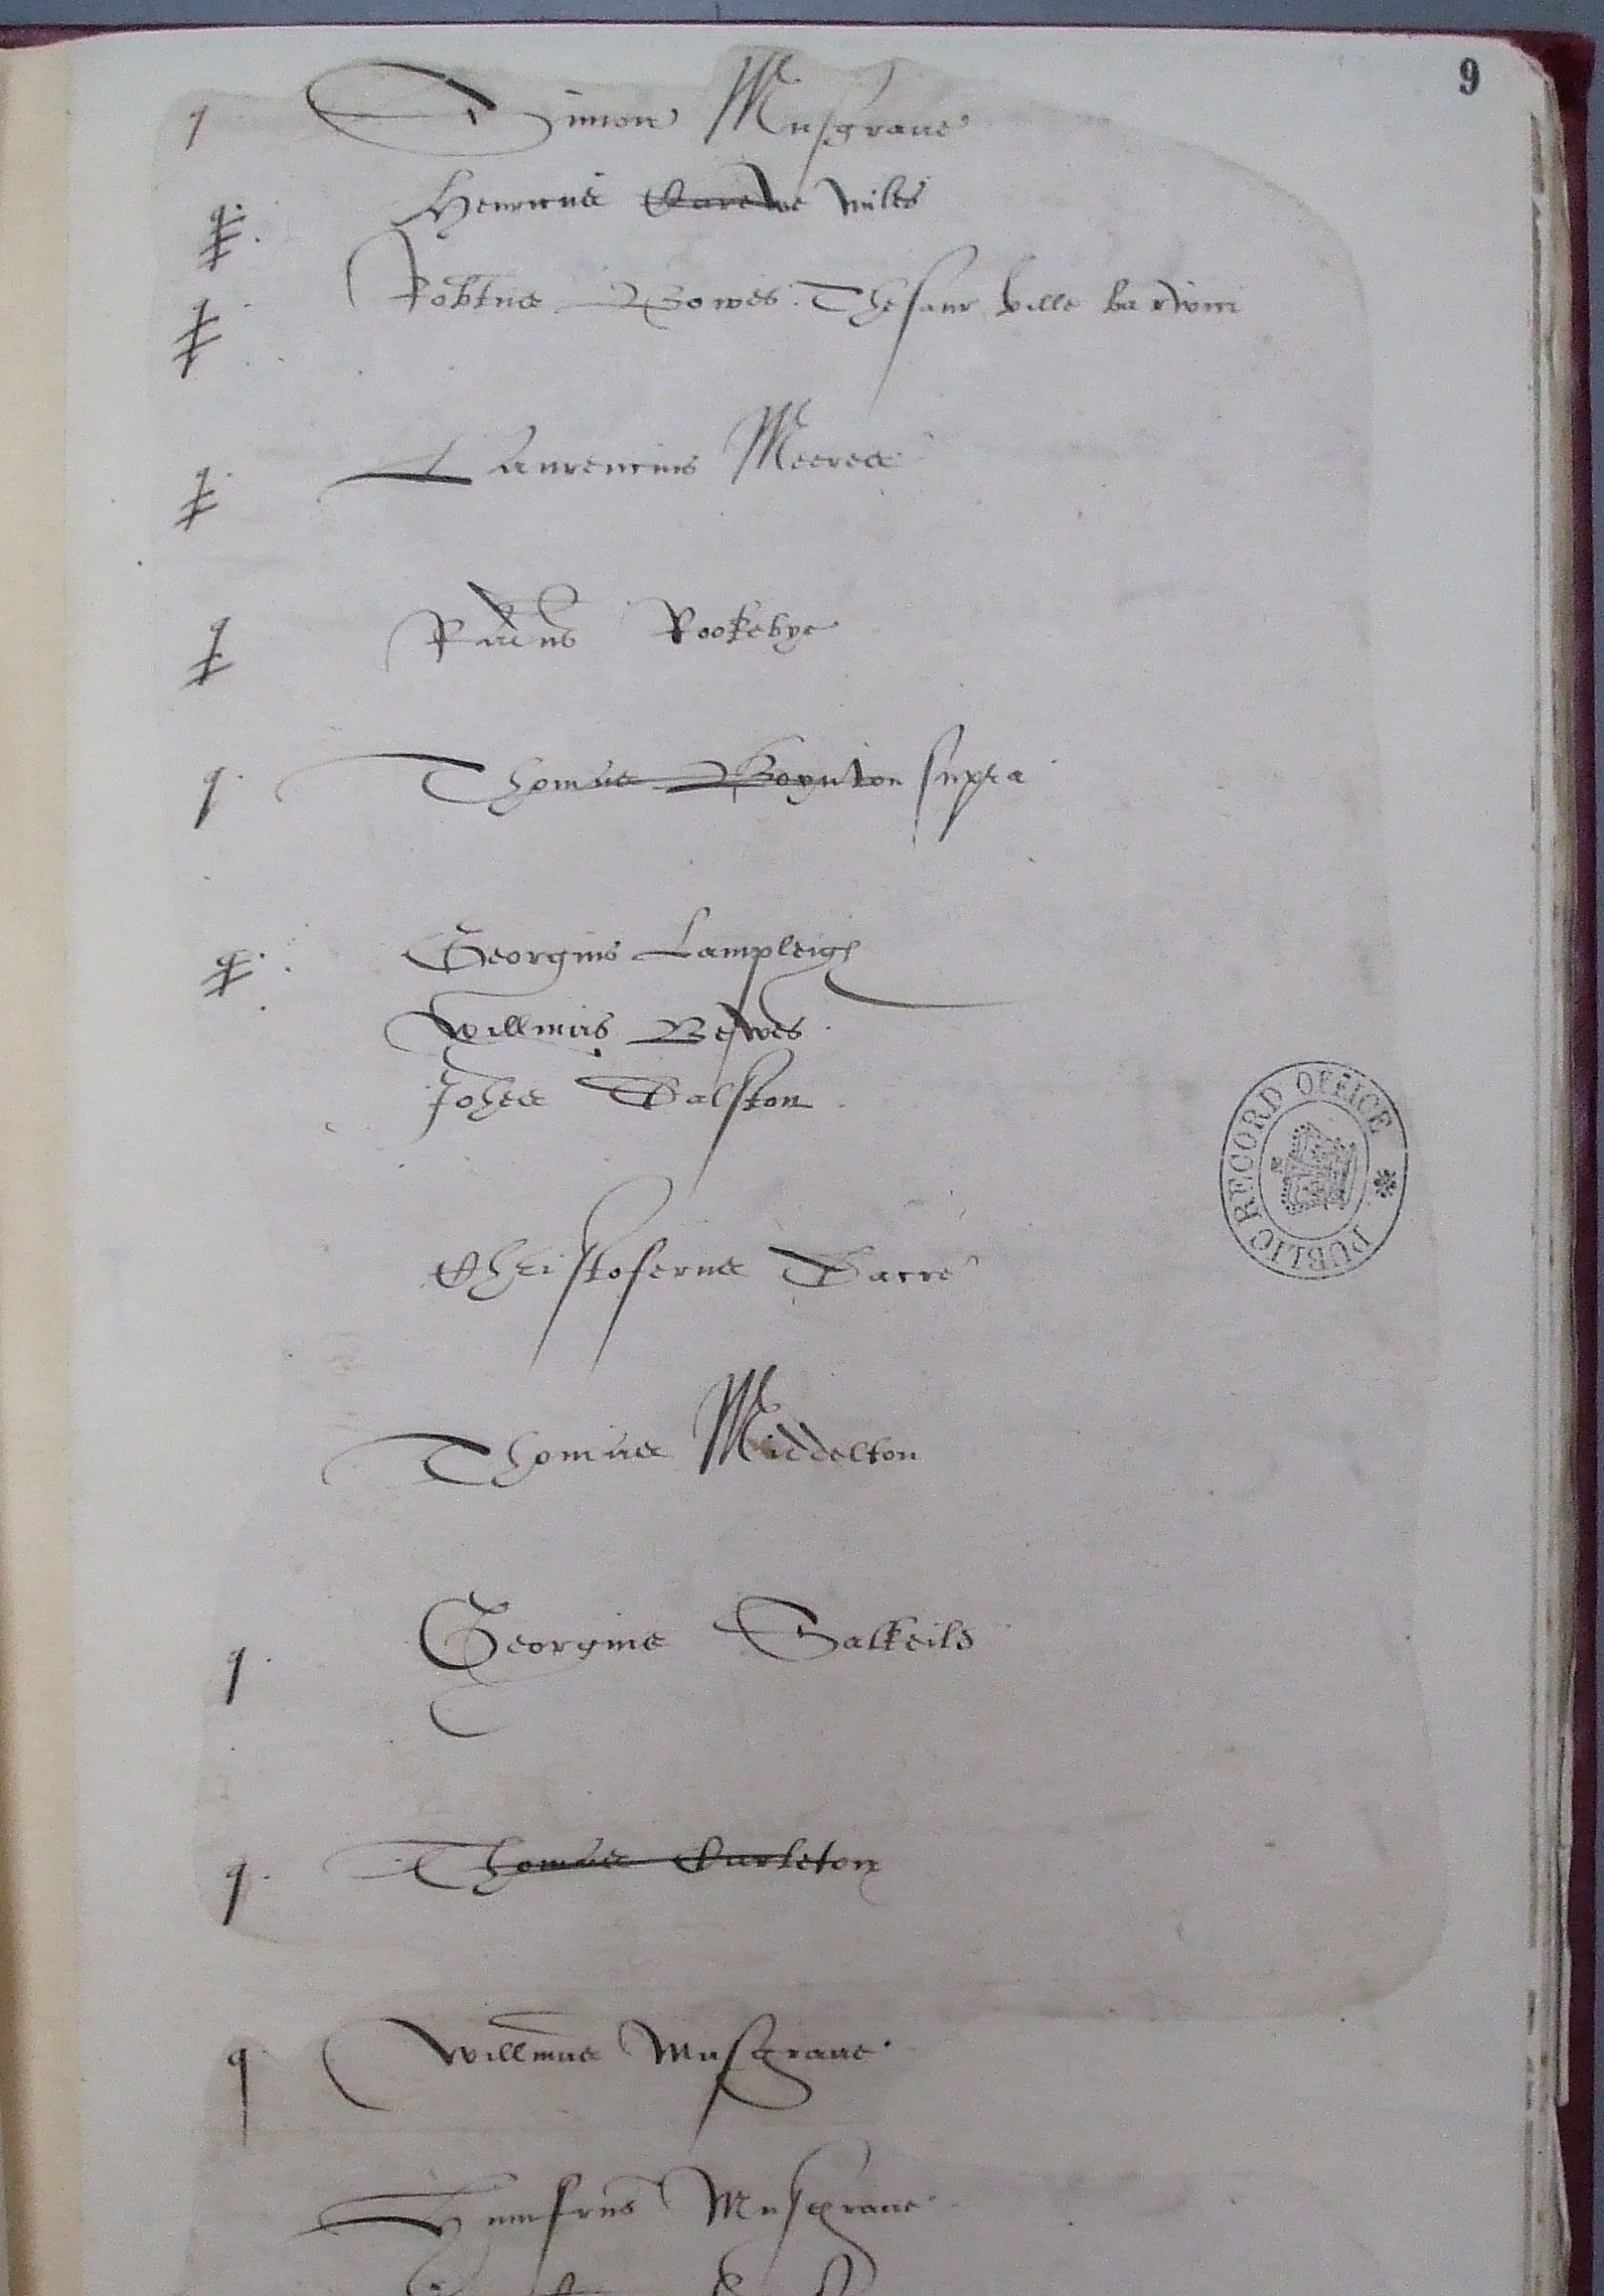 9
q Simon Musgrave
q. Henricus Carewe miles
q Robtus Bowes Thesaur ville barwici
q. Laurencius Meeres
q Radus Rookebye
q. Thomas Boynton supra
q. Georgius Lampleigh
Willmus Bewes
Johes Dalston
Christoferus Dacre
Thomas Middelton
q. Georgius Salkeild
q. Thomas Carleton
q Willmus Musgrave
Humfrus Musgrave
PUBLIC RECORD OFFICE